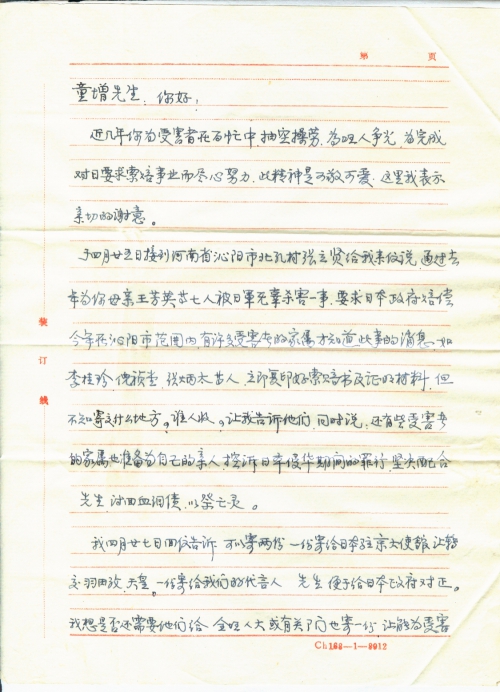 第 页
童增先生:你好!
近几年你为受害者在百忙中,抽空操劳,为咀人争光,为完成
对日要求索赔事业而尽心努力,此精神是可敬可爱,这里我表示
亲切的谢意。
于四月廿五日接到河南省沁阳市北孔村张立贤给我来信说,通过去
年为你母亲王芳英等七人被日军无辜杀害一事,要求日本政府赔偿
今年在沁阳市范围内有许多受害者的家属才知道此事的消息,如
李桂珍,张炳太等人,立即复印好索赔书及证明材料,但
不知寄交什么地方,谁人收。让我告诉他们,同时说,还有些受害者
的家属也准备为自己的亲人控诉日本侵华期间的罪行,坚决配合
先生讨回血泪债,以祭亡灵。
我四月廿七日回信告诉 可以寄两份 一份寄给日本驻京大使馆,让转
交羽田政,天皇,一份寄给我们的代言人 先生便于给日本政府对正。
我想是否还需要他们给 全咀人大或有关门也寄一份,让能为受害
装
订
线
Ch162—1—9012